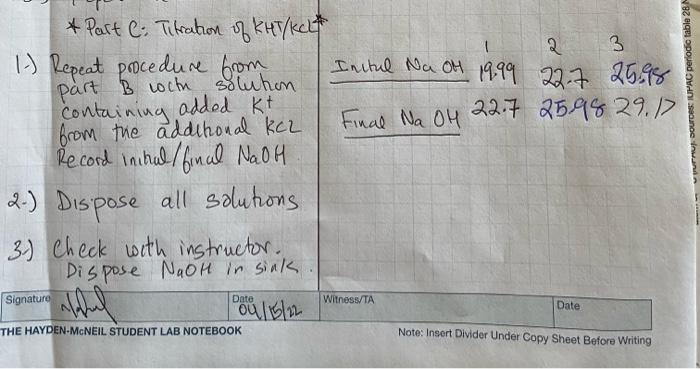 * Part C: Titration of KHT/KCl *
1 2 3
1.) Repeat procedure from
part B with solution
containing added K+
from the additional KCl
Record initial/final NaOH
Initial NaOH 19.99 22.7 25.98
Final NaOH 22.7 25.98 29.17
2.) Dispose all solutions
3.) Check with instructor.
Dispose NaOH in sink.
Signature
Date
04/15/22
Witness/TA
Date
THE HAYDEN-McNEIL STUDENT LAB NOTEBOOK
Note: Insert Divider Under Copy Sheet Before Writing
periodic table 28